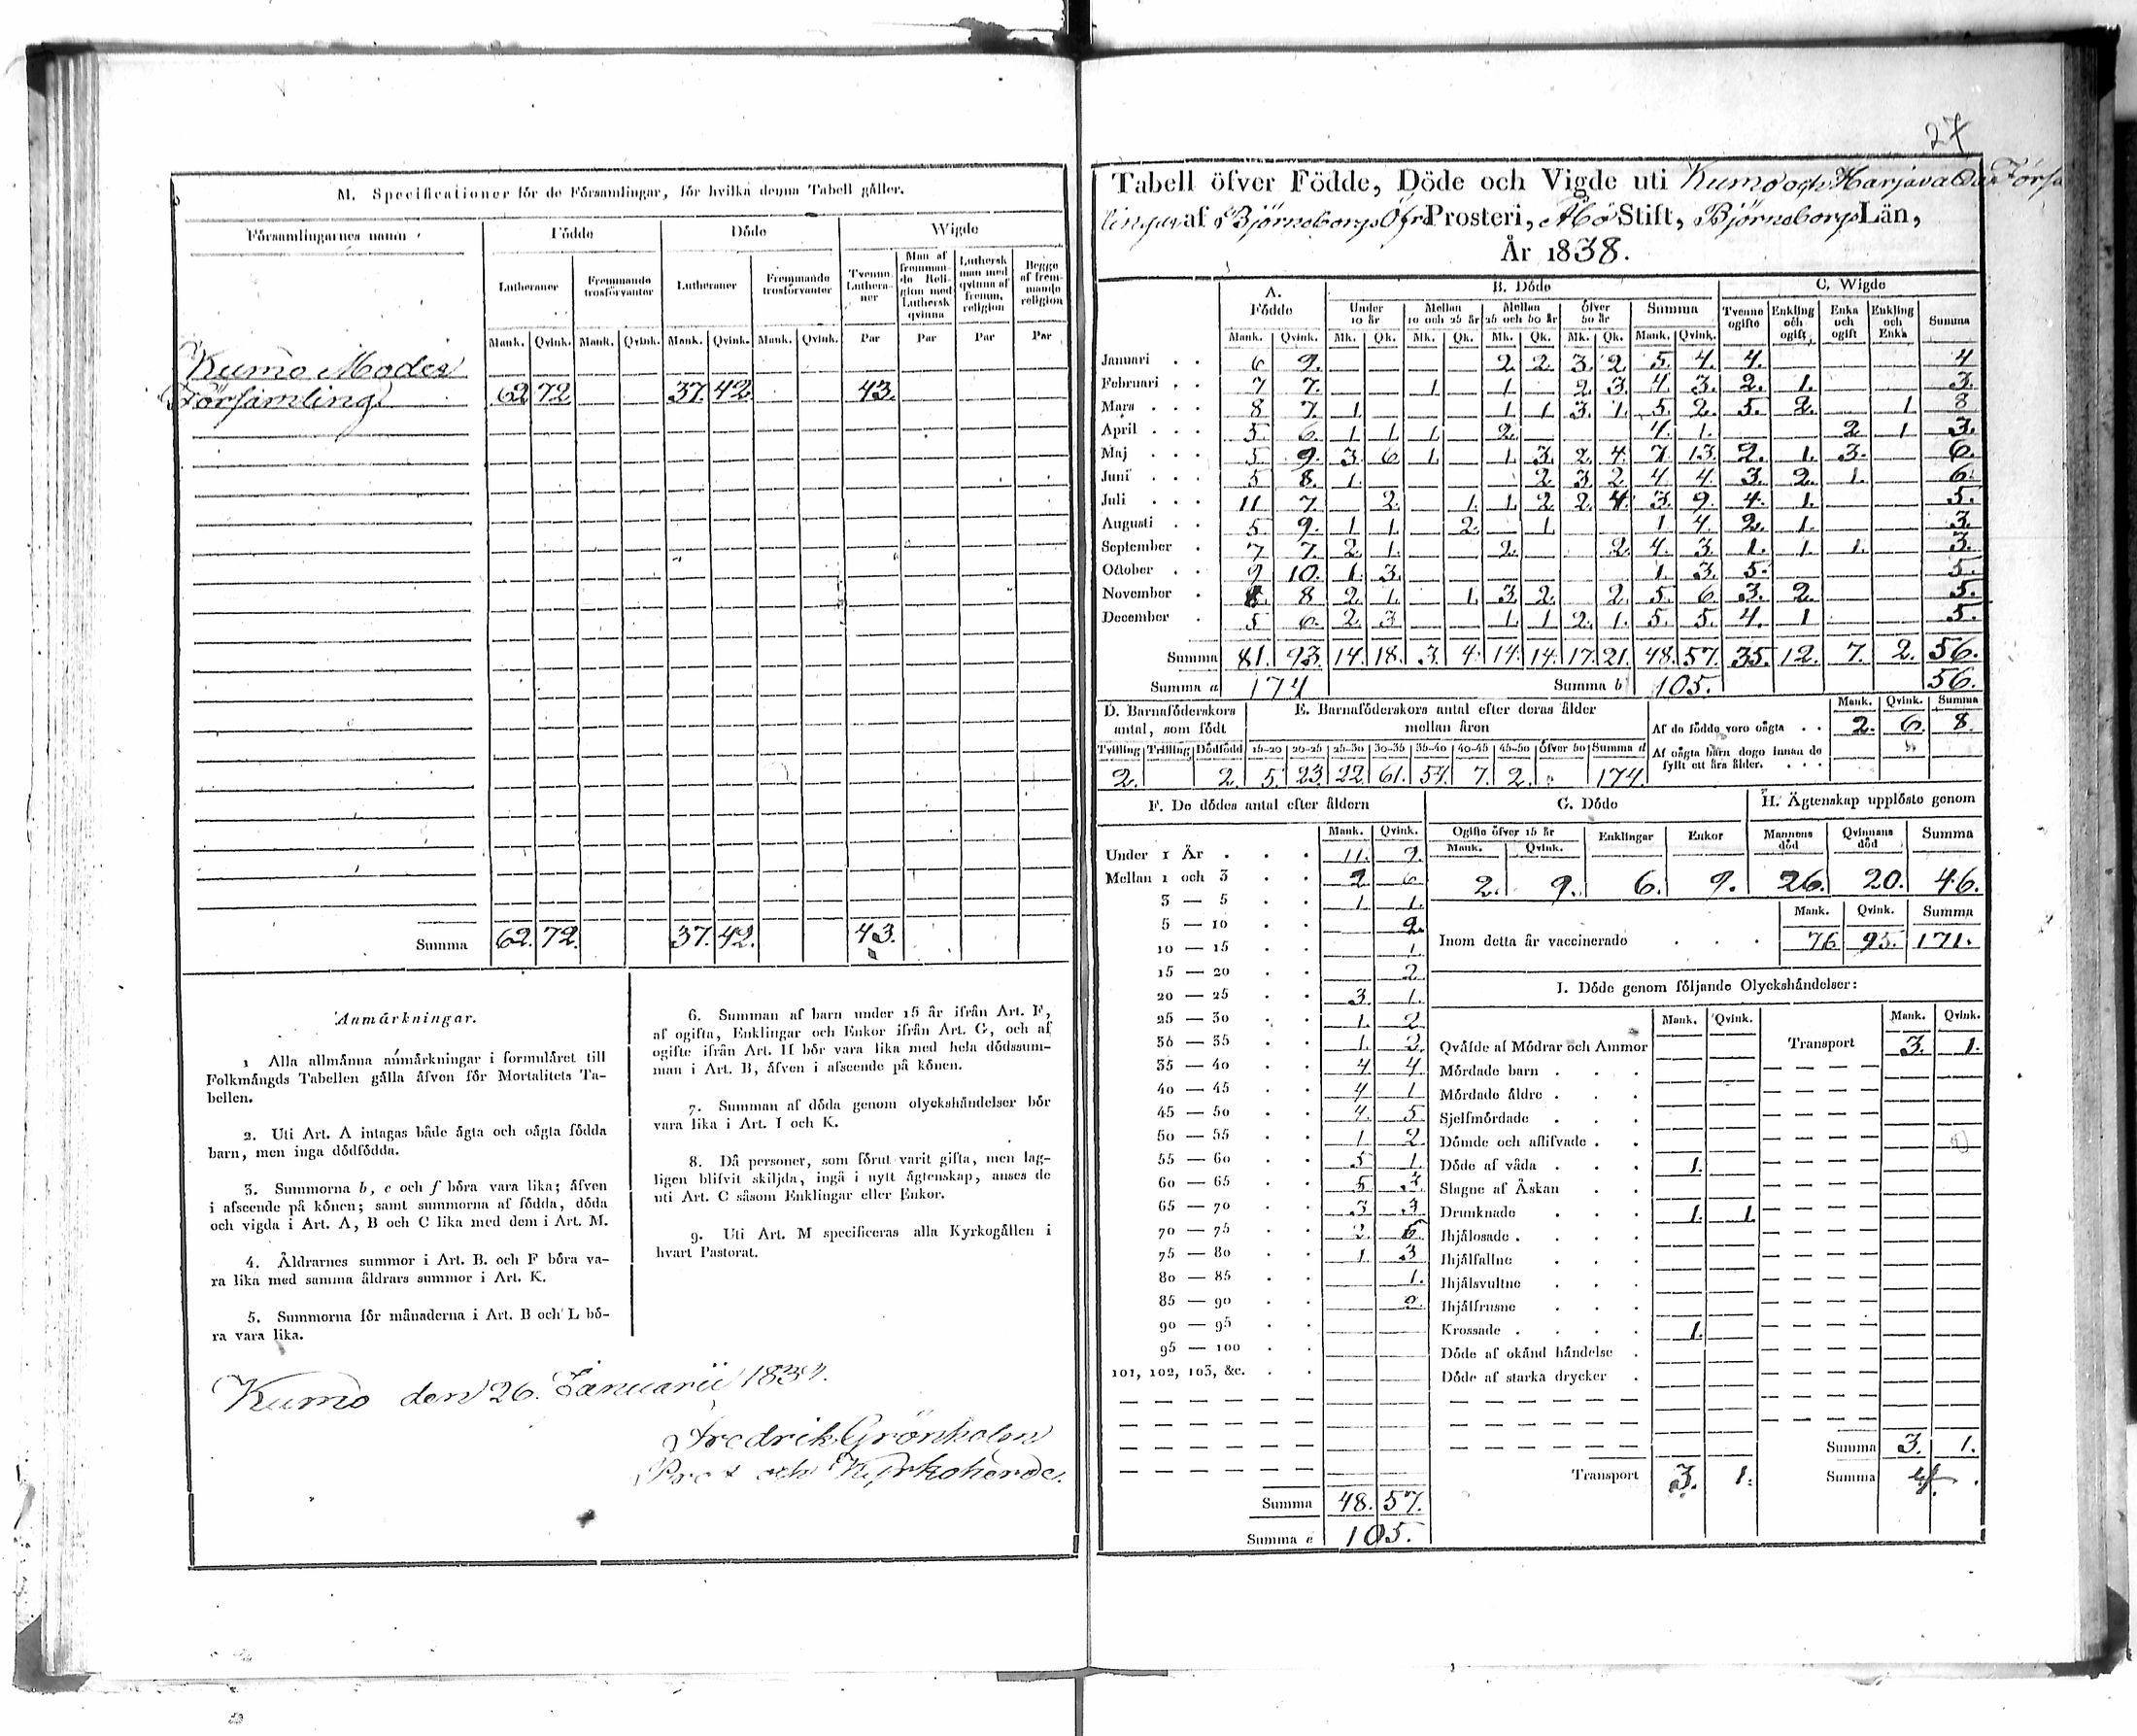 M. Specificationer för de Församlingar, för hvilka denna Tabell gäller.
Församlingarnes namn Födde Döde Wigde
Lutheraner Fremmande trosförvanter Lutheraner Fremmande trosförvanter Tvenne Lutheraner Man af fremmande Religion med Luthersk qvinna Luthersk man med qvinna af fremm. religion Begge af fremmande religion
Mank. Qvink. Mank. Qvink. Mank. Qvink. Mank. Qvink. Par Par Par Par
Kumo Moder
Församling 62 72 37. 42 43.
Summa 62. 72. 37. 42. 43.
Anmärkningar.
1 Alla allmänna anmärkningar i formuläret till
Folkmängds Tabellen gälla äfven för Mortalitets Ta-
bellen.
2. Uti Art. A intagas både ägta och oägta födda
barn, men inga dödfödda.
3. Summorna b, e och f böra vara lika; äfven
i afseende på könen; samt summorna af födda, döda
och vigda i Art. A, B och C lika med dem i Art. M.
4. Åldrarnes summor i Art. B. och F böra va-
ra lika med samma åldrars summor i Art. K.
5. Summorna för månaderna i Art. B och L bö-
ra vara lika.
6. Summan af barn under 15 år ifrån Art. F,
af ogifta, Enklingar och Enkor ifrån Art. G, och af
ogifte ifrån Art. H bör vara lika med hela dödssum-
man i Art. B, äfven i afseende på könen.
7. Summan af döda genom olyckshändelser bör
vara lika i Art. I och K.
8. Då personer, som förut varit gifta, men lag-
ligen blifvit skiljda, ingå i nytt ägtenskap, anses de
uti Art. C såsom Enklingar eller Enkor.
9. Uti Art. M specificeras alla Kyrkogällen i
hvart Pastorat.
Kumo den 26. Januarii
Fredrik Grönholm
och Kyrkoherde.
27
Tabell öfver Födde, Döde och Vigde uti Kumo och Harjavalda Försam
lingar af Björneborgs Öfre Prosteri, Åbo Stift, Björneborgs Län,
År 1838.
A. Födde B. Döde C. Wigde
Under 10 år Mellan 10 och 25 år Mellan 25 och 50 år Öfver 50 år Summa Tvenne ogifte Enkling och ogift Enka och ogift Enkling och Enka Summa
Mank. Qvink. Mk. Qk. Mk. Qk. Mk. Qk. Mk. Qk. Mank. Qvink.
Januari 6 9. 2 2. 3. 2. 5. 4. 4. 4
Februari 7 7. 1 1. 2. 3. 4. 3. 2. 1. 3.
Mars 8 7. 1. 1 1 3. 1. 5. 2. 5. 2. 1 8
April 5. 6. 1 1. 1. 2. 4. 1. 2 1 3.
Maj 5 9. 3 6 1. 1 3. 2. 4. 7. 13. 2. 1. 3. 6.
Juni 5 8. 1. 2 3. 2. 4. 4. 3. 2. 1. 6.
Juli 11 7. 2. 1. 1. 2 2. 4. 3. 9. 4. 1. 5.
Augusti 5 9. 1 1. 2. 1 1. 4. 2. 1. 3.
September 7 7. 2. 1. 2. 2. 4. 3. 1. 1. 1. 3.
October 9 10. 1. 3. 1. 3. 5. 5.
November 8 8 2. 1. 1. 3 2. 2. 5. 6. 3. 2. 5.
December 5 6. 2. 3 1. 1 2. 1. 5. 5. 4. 1 5.
Summa 81. 93. 14. 18. 3. 4. 14. 14. 17. 21. 48. 57. 35. 12. 7. 2. 56.
Summa a 174 Summa b 105. 56.
D. Barnaföderskors antal, som födt
Tvilling Trilling Dödfödd
2. 2.
E. Barnaföderskors antal efter deras ålder
mellan åren
15-20 20-25 25-30 30-35 35-40 40-45 45-50 öfver 50 Summa d
5. 23. 22. 61. 54. 7. 2. 174.
Mank. Qvink. Summa
Af de födde voro oägta 2. 6. 8.
Af oägta barn dogo innan de
fyllt ett års ålder.
F. De dödes antal efter åldern
Mank. Qvink.
Under 1 År 11. 9.
Mellan 1 och 3 2 6
3 — 5 1 1.
5 — 10 2.
10 — 15 1
15 — 20 2
20 — 25 3. 1.
25 — 30 1. 2
30 — 35 1. 2.
35 — 40 4 4
40 — 45 4 1
45 — 50 4. 5
50 — 55 1 2
55 — 60 5 1.
60 — 65 5 3.
65 — 70 3 3
70 — 75 2. 6.
75 — 80 1. 3
80 — 85 1.
85 — 90 2.
90 — 95
95 — 100
101, 102, 103, &c.
Summa 48. 57.
Summa e 105.
G. Döde
Ogifte öfver 15 år Enklingar Enkor
Mank. Qvink.
2. 9. 6. 9.
H. Ägtenskap upplöste genom
Mannens död Qvinnans död Summa
26. 20. 46.
Mank. Qvink. Summa
Inom detta år vaccinerade 76 95. 171.
I. Döde genom följande Olyckshändelser:
Mank. Qvink. Mank. Qvink.
Qväfde af Mödrar och Ammor Transport 3. 1.
Mördade barn
Mördade äldre
Sjelfmördade
Dömde och aflifvade
Döde af våda 1.
Slagne af Åskan
Drunknade 1. 1
Ihjälosade
Ihjälfallne
Ihjälsvultne
Ihjälfrusne
Krossade 1.
Döde af okänd händelse
Döde af starka drycker
Summa 3. 1.
Transport 3. 1. Summa 4.